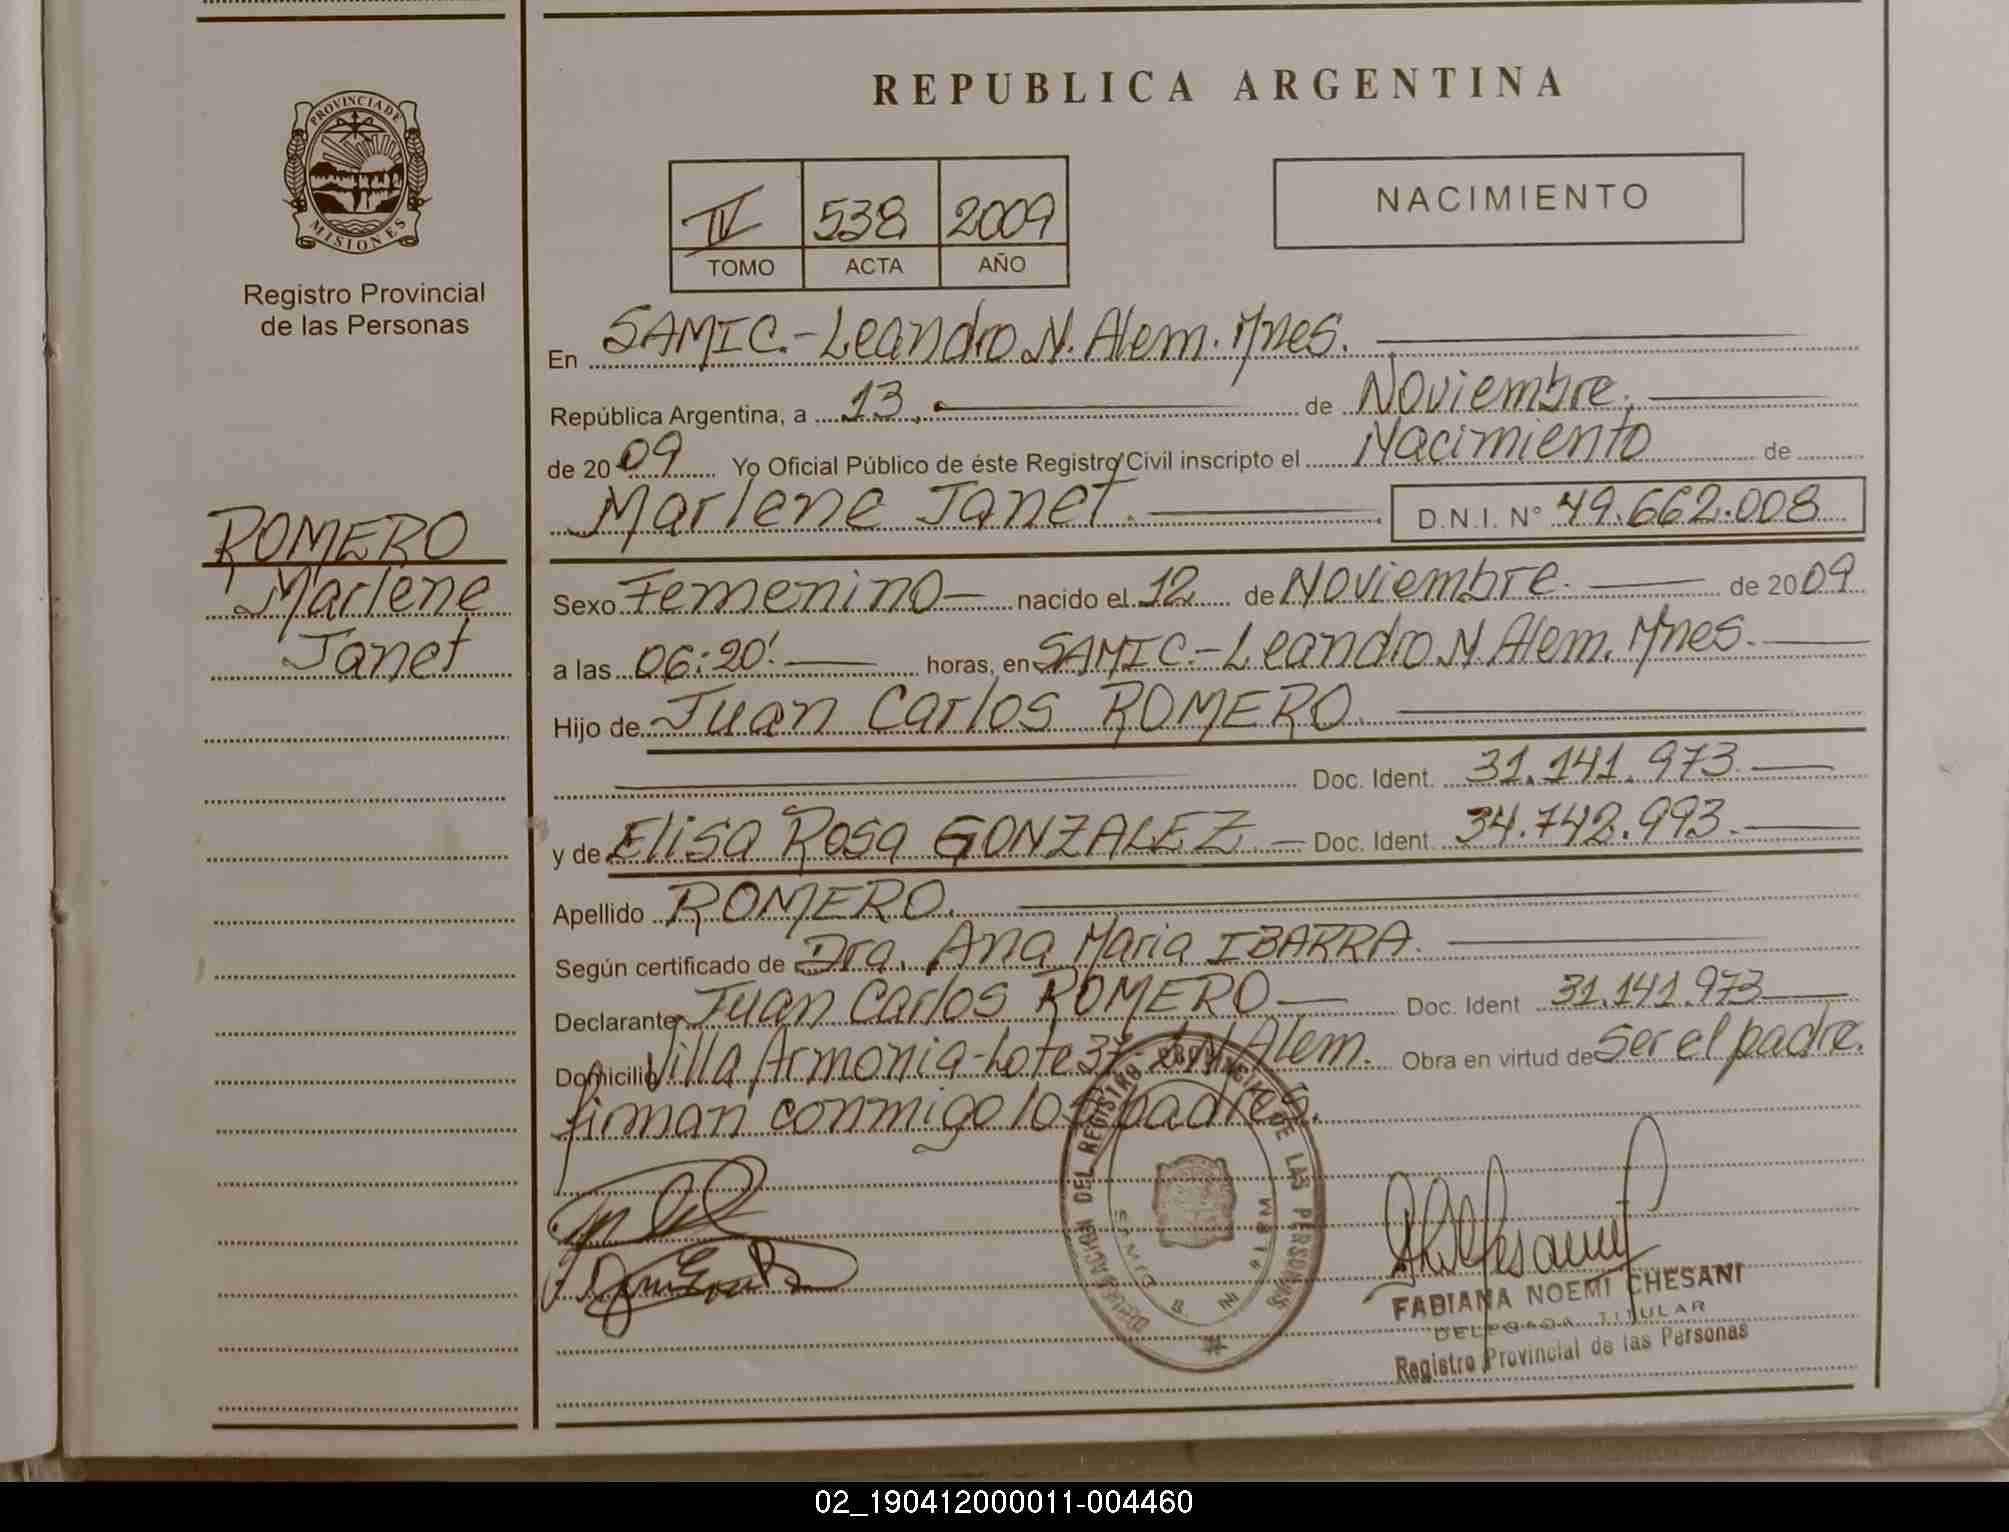 REPUBLICA ARGENTINA
PROVINCIA DE
MISIONES
Registro Provincial
de las Personas
IV 538 2009
TOMO ACTA AÑO
NACIMIENTO
En SAMIC.-Leandro N. Alem. Mnes.
República Argentina, a 13. de Noviembre.
de 2009 Yo Oficial Público de éste Registro Civil inscripto el Nacimiento de
Marlene Janet. D.N.I. N° 49.662.008
ROMERO
Marlene
Janet
Sexo Femenino nacido el 12 de Noviembre. de 2009
a las 06:20'. horas, en SAMIC.-Leandro N Alem. Mnes.
Hijo de Juan Carlos ROMERO.
Doc. Ident. 31.141.973
y de Elisa Rosa GONZALEZ. Doc. Ident. 34.742.993.
Apellido ROMERO.
Según certificado de Dra. Ana Maria IBARRA.
Declarante Juan Carlos ROMERO Doc. Ident 31.141.973
Domicilio Villa Armonia-Lote 37- L N Alem. Obra en virtud de ser el padre.
firman conmigo los padres.
DELEGACION DEL REGISTRO PROVINCIAL DE LAS PERSONAS
FABIANA NOEMI CHESANI
DELEGADA TITULAR
Registro Provincial de las Personas
02_190412000011-004460